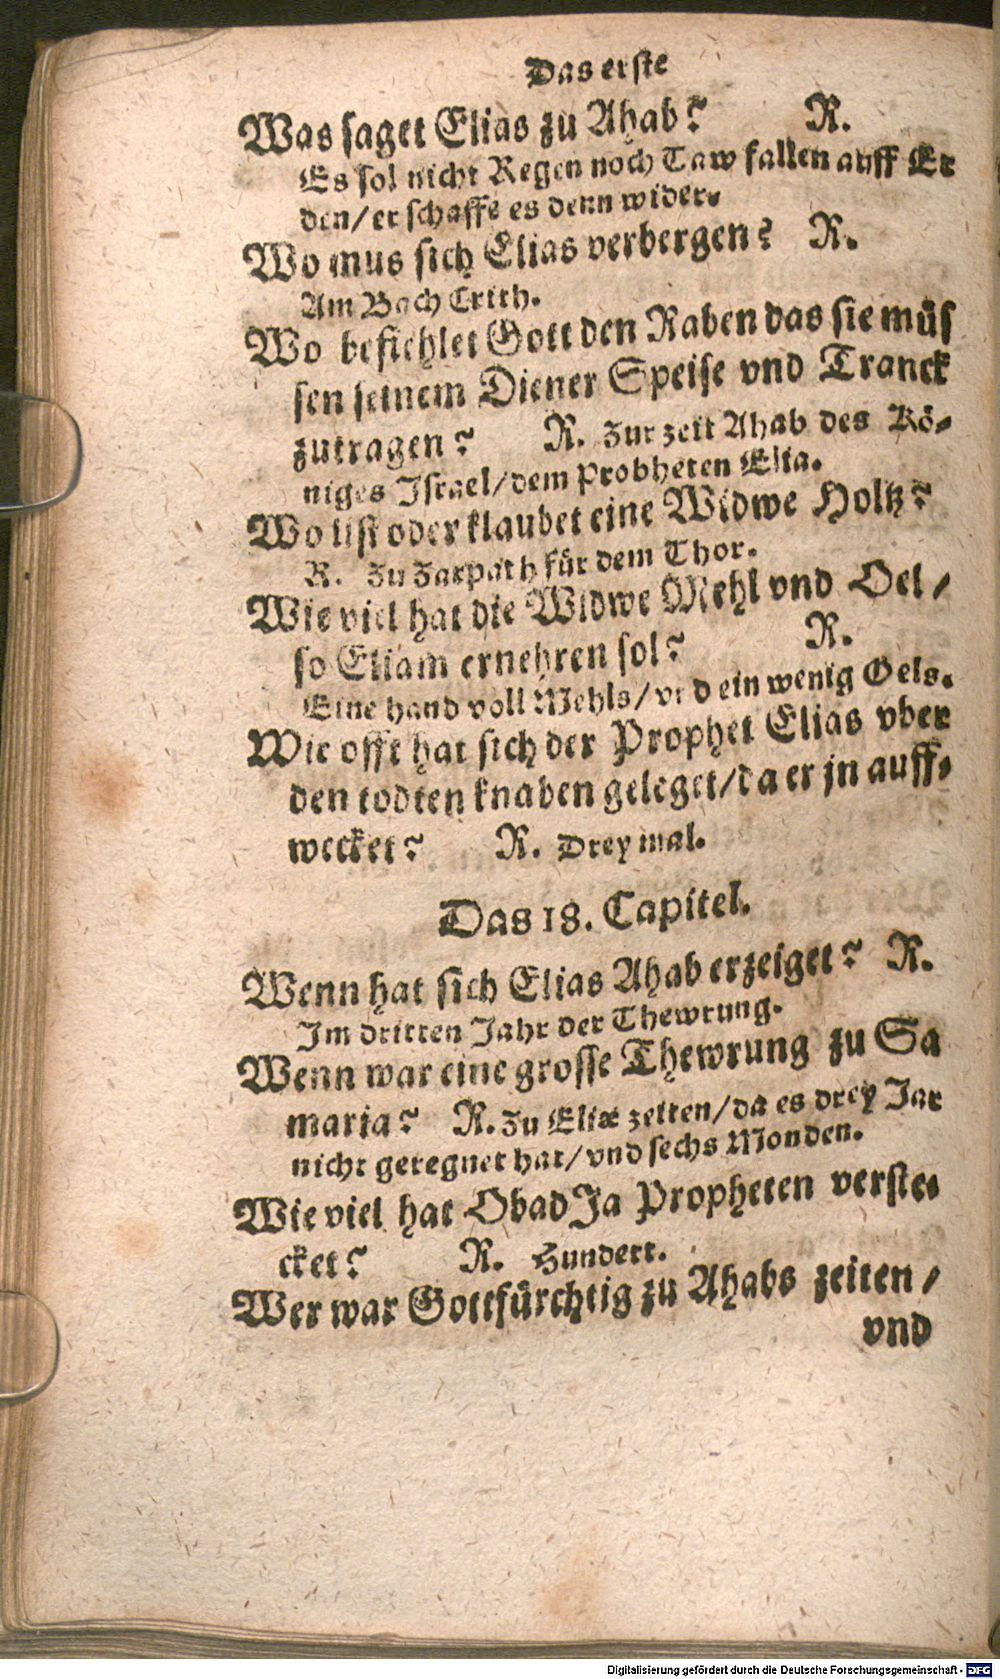 Das erste
Was saget Elias zu Ahab? R.
Es sol nicht Regen noch Taw fallen auff Er
den/ er schaffe es denn wider.
Wo mus sich Elias verbergen? R.
Am Bach Crith.
Wo befiehlet Gott den Raben das sie müs
sen seinem Diener Speise vnd Tranck
zutragen? R. Zur zeit Ahab des Kö-
niges Israel/ dem Probheten Elia.
Wo list oder klaubet eine Widwe Holtz?
R. Zu Zarpath für dem Thor.
Wie viel hat die Widwe Mehl vnd Oel/
so Eliam ernehren sol? R.
Eine hand voll Mehls/ vnd ein wenig Oels.
Wie offt hat sich der Prophet Elias vber
den todten knaben geleget/ da er jn auff-
wecket? R. Drey mal.
Das 18. Capitel.
Wenn hat sich Elias Ahab erzeiget? R.
Im dritten Jahr der Thewrung.
Wenn war eine grosse Thewrung zu Sa
maria? R. Zu Eliæ zeiten/ da es drey Jar
nicht geregnet hat/ vnd sechs Monden.
Wie viel hat ObadJa Propheten verste-
cket? R. Hundert.
Wer war Gottfürchtig zu Ahabs zeiten/
vnd
Digitalisierung gefördert durch die Deutsche Forschungsgemeinschaft - DFG